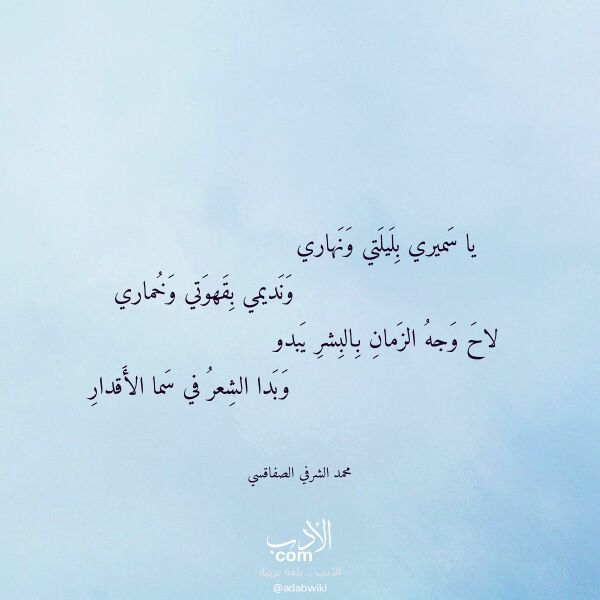 يا سَميري بِلَيلَتي وَنَهاري
وَنَديمي بِقَهوَتي وَخُماري
لاحَ وَجهُ الزَمانِ بِالبِشرِ يَبدو
وَبَدا الشِعرُ في سَما الأَقدارِ
محمد الشرفي الصفاقسي
الأدب
com
الأدب .. بلغة عربية
@adabwiki